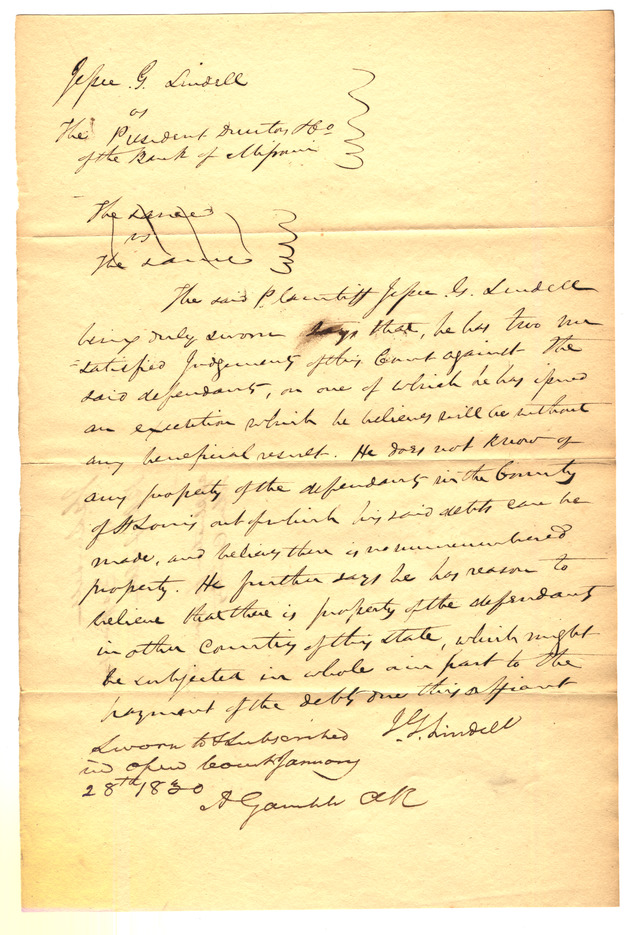 Jesse G. Lindell
vs
The President Directors & Co
of the Bank of Missouri
The same
vs
The same
The said Plaintiff Jesse G. Lindell
being duly sworn says that, he has two un
=satisfied Judgements of this Court against the
said defendants, on one of which he has issued
an execution which he believes will be without
any beneficial result. He does not know of
any property of the defendants in the County
of St Louis out of which his said debts can be
made, and believes there is no unincumbered
property. He further says he has reason to
believe that there is property of the defendants
in other Counties of this state, which might
be subjected in whole or in part to the
payment of the debts due this affiant
Sworn to & Subscribed J. G. Lindell
in open Court January
28th 1830
A Gamble Clk